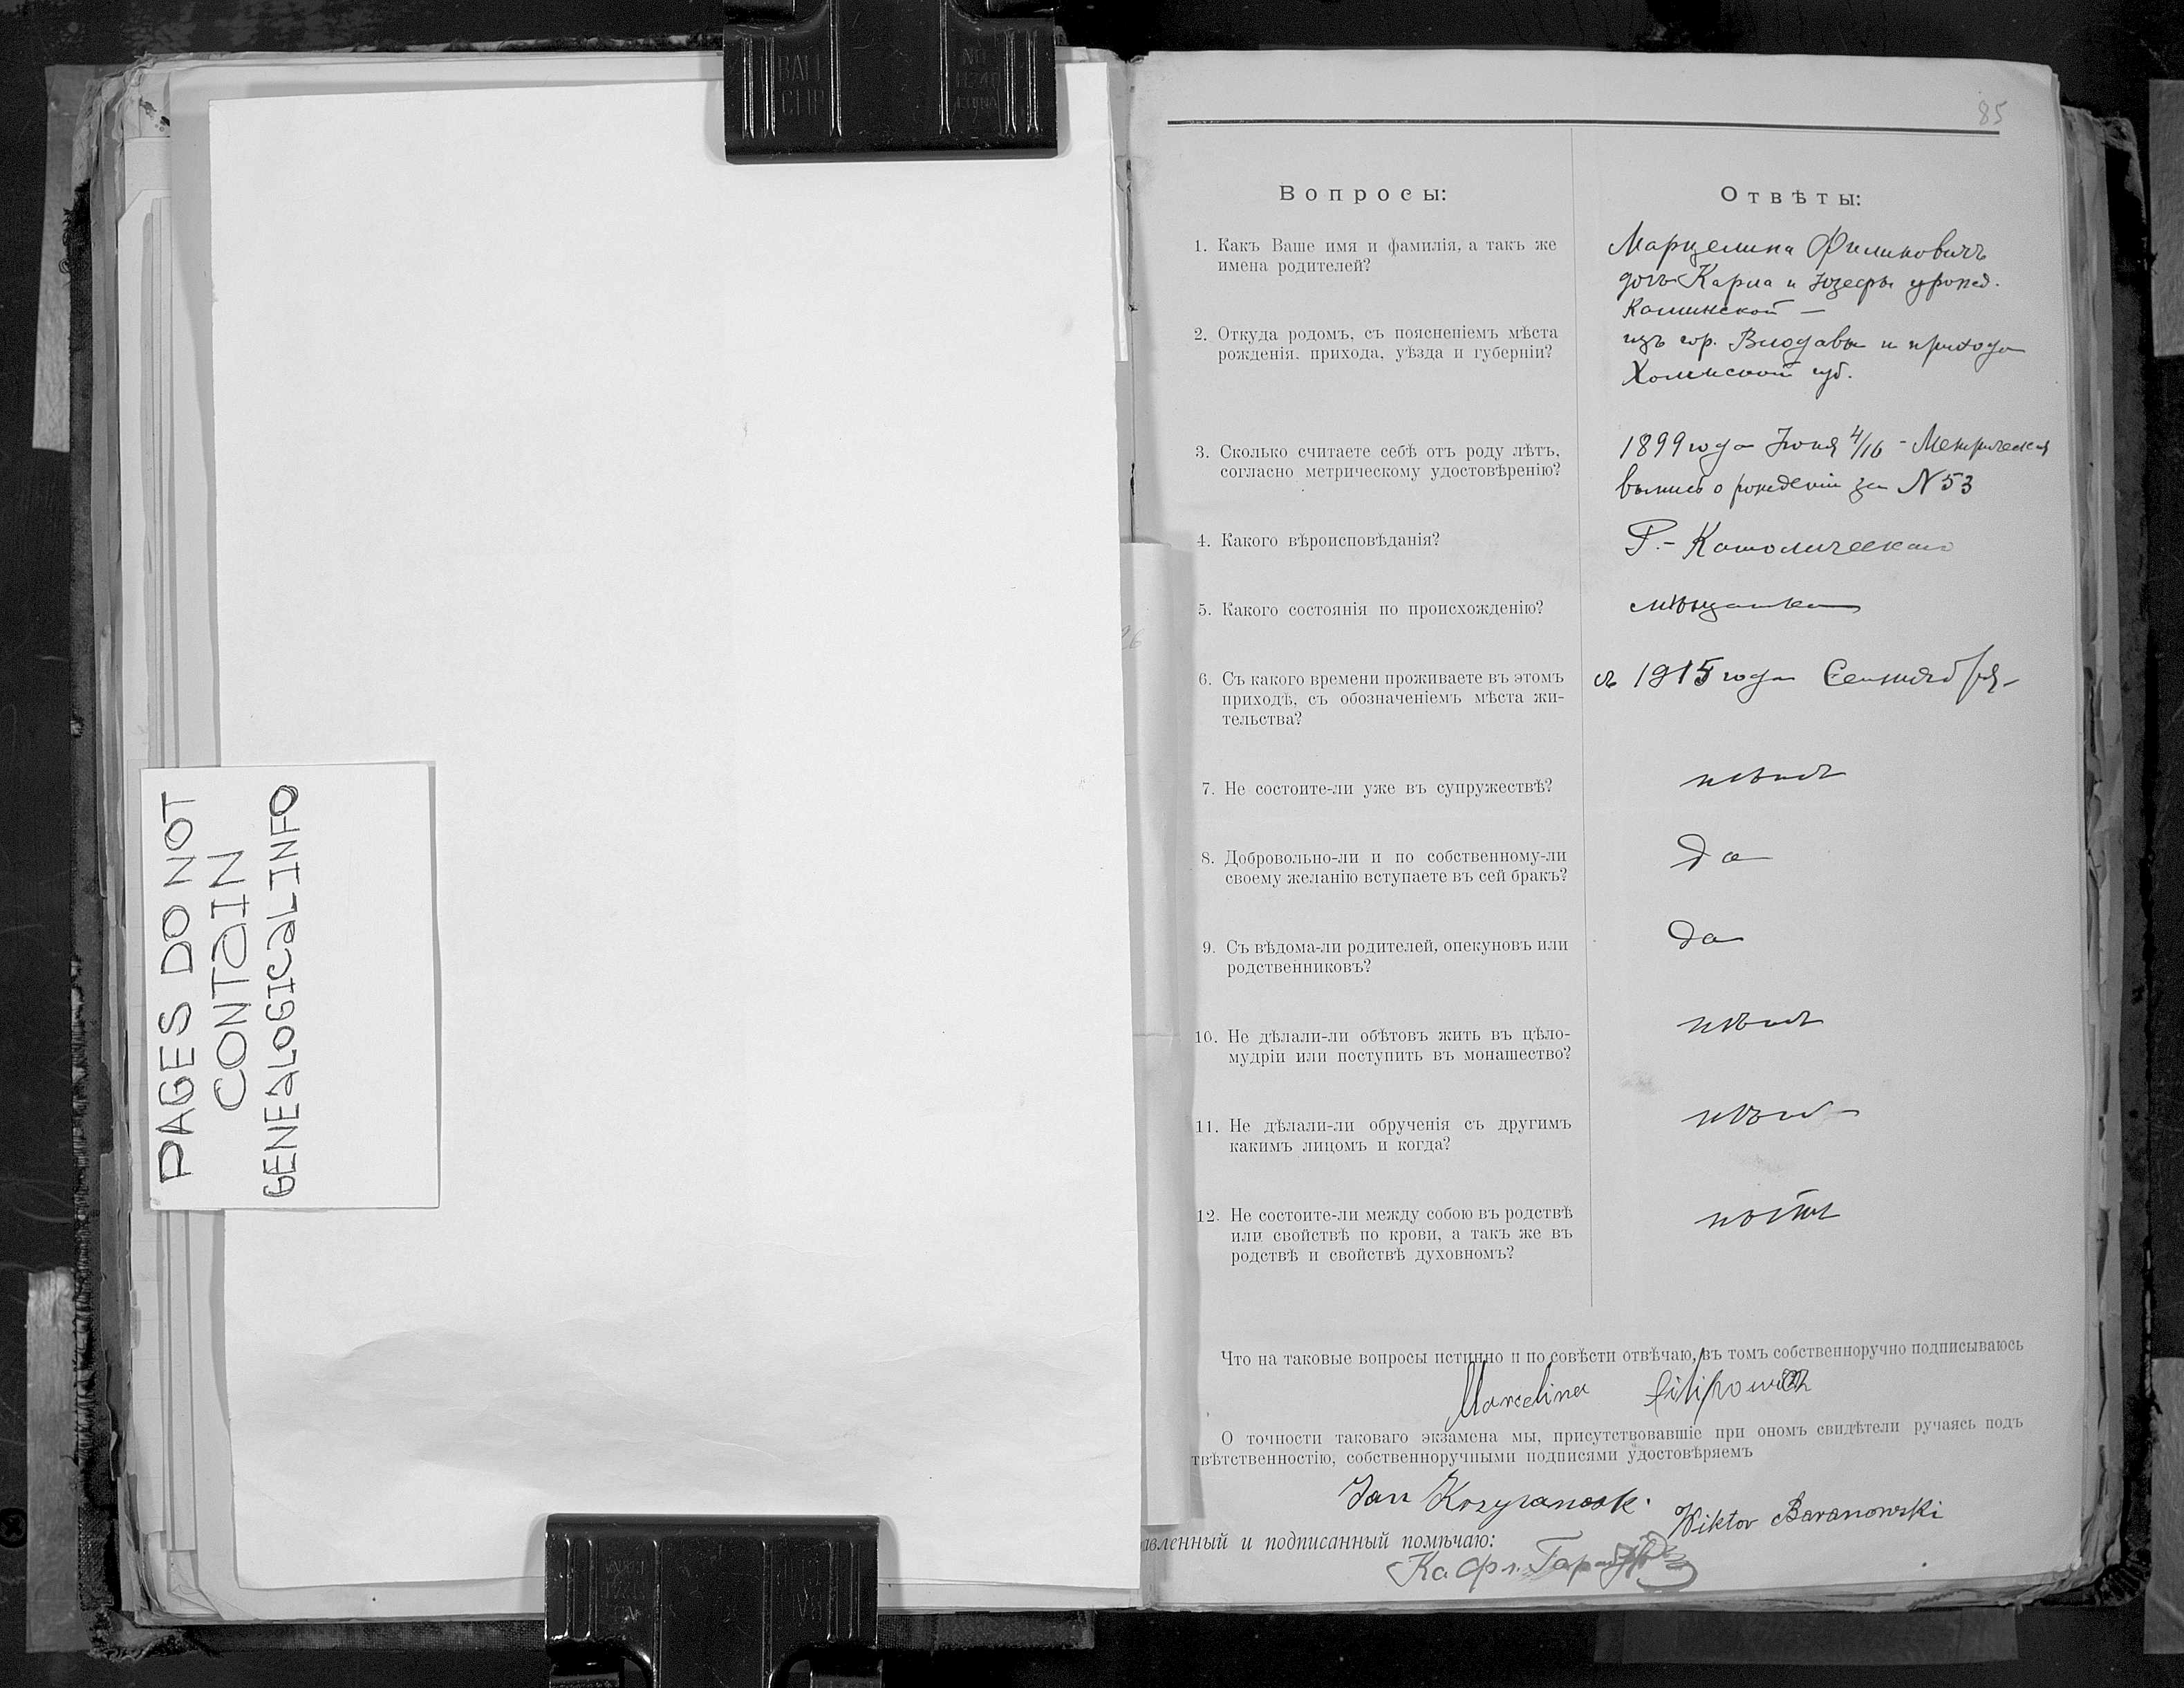 BALL
CLIP
NO
KOREA
PAGES DO NOT
CONTAIN
GENEALOGICAL INFO
85
Вопросы:
Отвѣты:
1. Какъ Ваше имя и фамилія, а такъ же
имена родителей?
Марцелина Филиповичъ
дочь Карла и Юзефы урожд.
2. Откуда родомъ, съ поясненіемъ мѣста
рожденія, прихода, уѣзда и губерніи?
изъ гор. Влодавы и прихода
Холмской губ.
3. Сколько считаете себѣ отъ роду лѣтъ,
согласно метрическому удостовѣренію?
1899 года Іюня 4/16 - Метрическая
выпись о рожденіи за N 53
4. Какого вѣроисповѣданія?
Р.- Католическаго
5. Какого состоянія по происхожденію?
мѣщанка
6. Съ какого времени проживаете въ этомъ
приходѣ, съ обозначеніемъ мѣста жи-
тельства?
съ 1915 года Сентября
7. Не состоите-ли уже въ супружествѣ?
нѣтъ
8. Добровольно-ли и по собственному-ли
своему желанію вступаете въ сей бракъ?
да
9. Съ вѣдома-ли родителей, опекуновъ или
родственниковъ?
да
10. Не дѣлали-ли обѣтовъ жить въ цѣло-
мудріи или поступить въ монашество?
нѣтъ
11. Не дѣлали-ли обрученія съ другимъ
какимъ лицомъ и когда?
нѣтъ
12. Не состоите-ли между собою въ родствѣ
или свойствѣ по крови, а такъ же въ
родствѣ и свойствѣ духовномъ?
нѣтъ
Что на таковые вопросы истинно и по совѣсти отвѣчаю, въ томъ собственноручно подписываюсь
Marcelina Filipowicz
О точности таковаго экзамена мы, присутствовавшіе при ономъ свидѣтели ручаясь подъ
твѣтственностію, собственноручными подписями удостовѣряемъ
Jan
Wiktor Baranowski
авленный и подписанный помѣчаю: